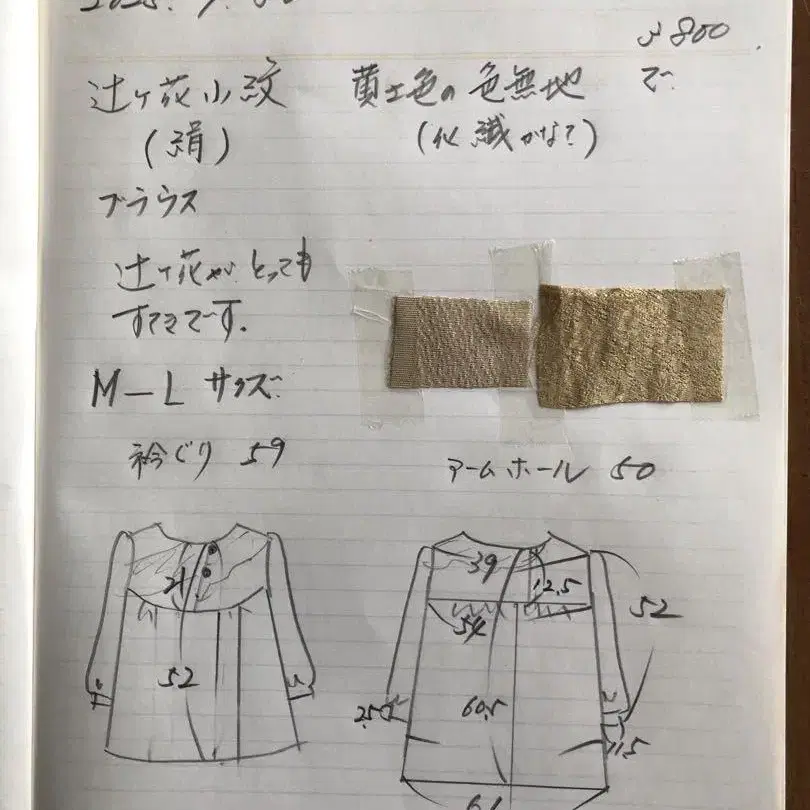 ¥800
で
辻ヶ花小紋
(絹)
黄土色の色無地
(化繊かな?)
ブラウス
辻ヶ花がとっても
すてきです。
M-Lサイズ
衿ぐり 59
アームホール 50
21
52
39
12.5
54
60.5
52